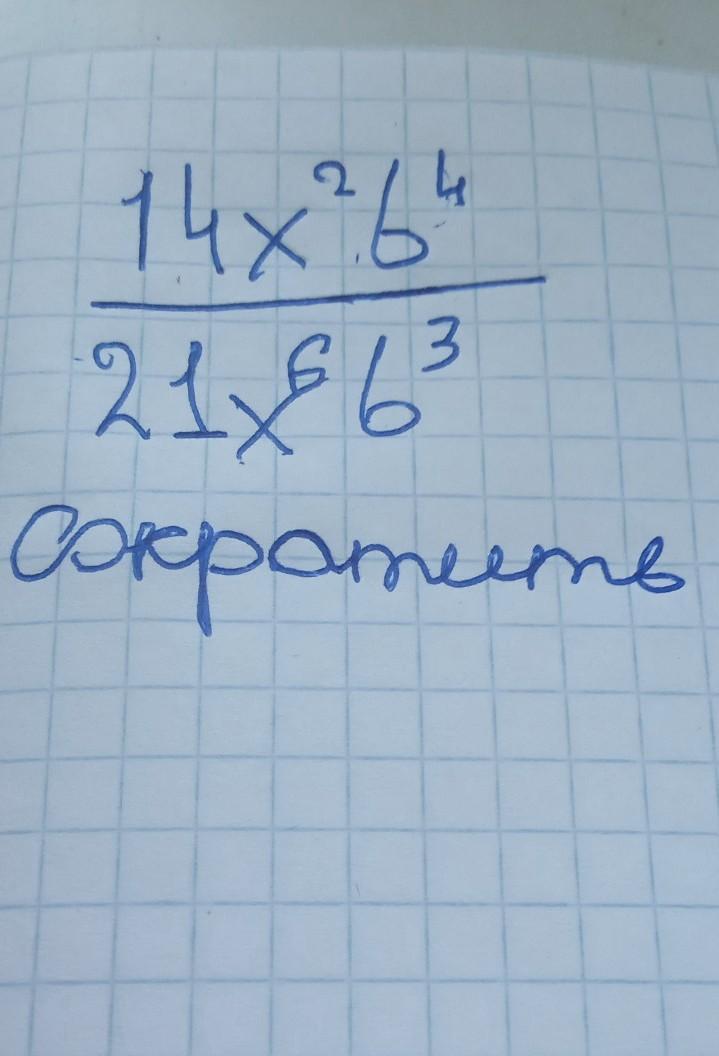 14x²b⁴
21x⁶b³
сократить